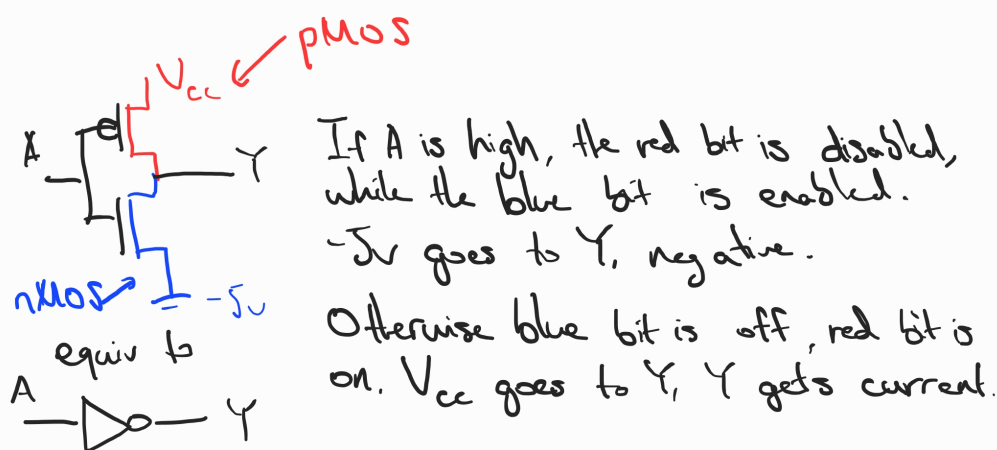 pMOS
Vcc
A
Y
nMOS
-5v
equiv to
A
Y
If A is high, the red bit is disabled,
while the blue bit is enabled.
-5v goes to Y, negative.
Otherwise blue bit is off, red bit is
on. Vcc goes to Y, Y gets current.